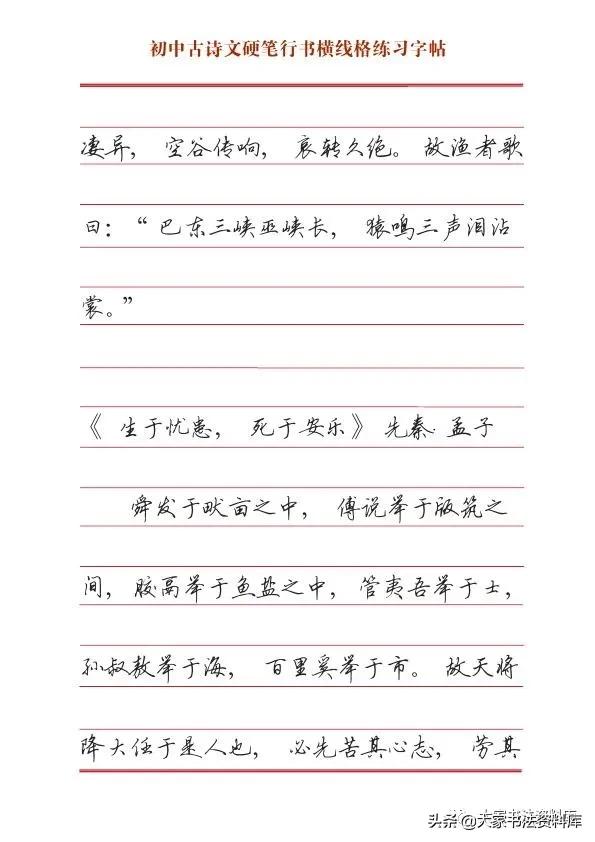 初中古诗文硬笔行书横线格练习字帖
凄异，空谷传响，哀转久绝。故渔者歌
曰：“巴东三峡巫峡长，猿鸣三声泪沾
裳。”
《生于忧患，死于安乐》先秦·孟子
舜发于畎亩之中，傅说举于版筑之
间，胶鬲举于鱼盐之中，管夷吾举于士，
孙叔敖举于海，百里奚举于市。故天将
降大任于是人也，必先苦其心志，劳其
头条@大家书法资料库